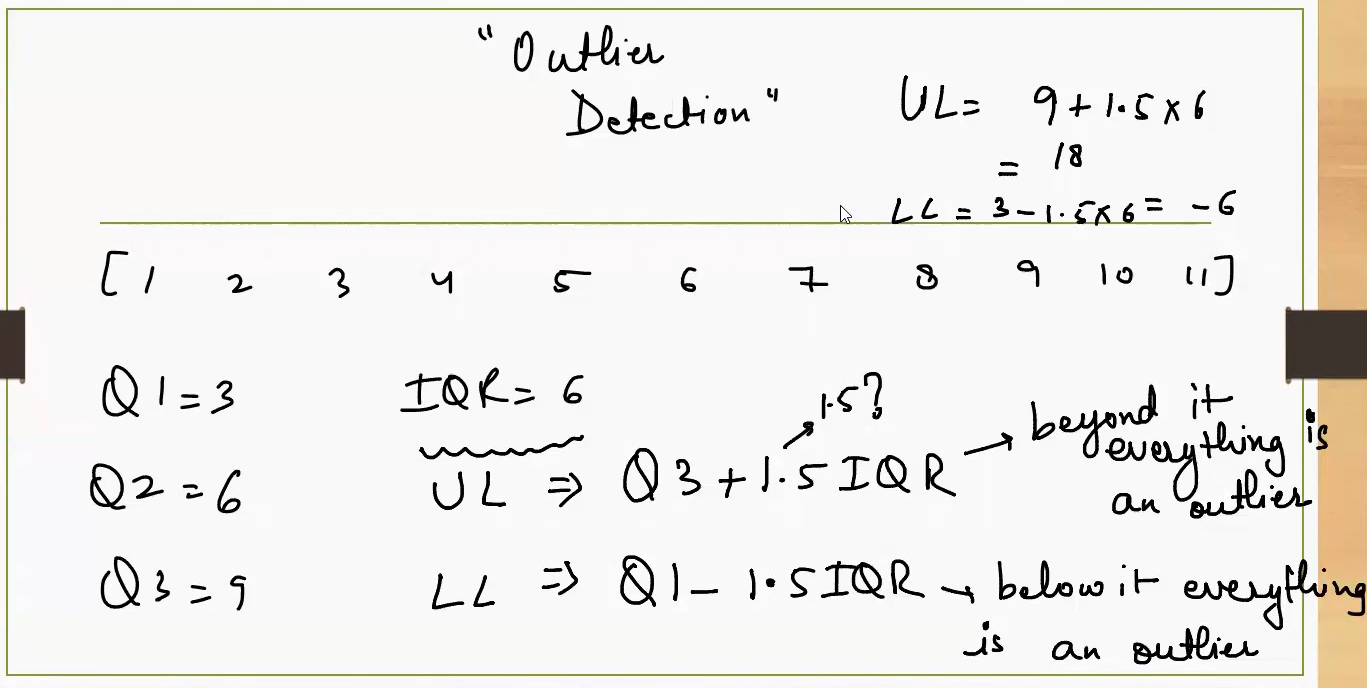 "Outlier
Detection"
UL = 9 + 1.5 x 6
= 18
LL = 3 - 1.5 x 6 = -6
[1 2 3 4 5 6 7 8 9 10 11]
Q1 = 3 IQR = 6
1.5?
Q2 = 6 UL ⇒ Q3 + 1.5 IQR → beyond it everything is an outlier
Q3 = 9 LL ⇒ Q1 - 1.5 IQR → below it everything
is an outlier